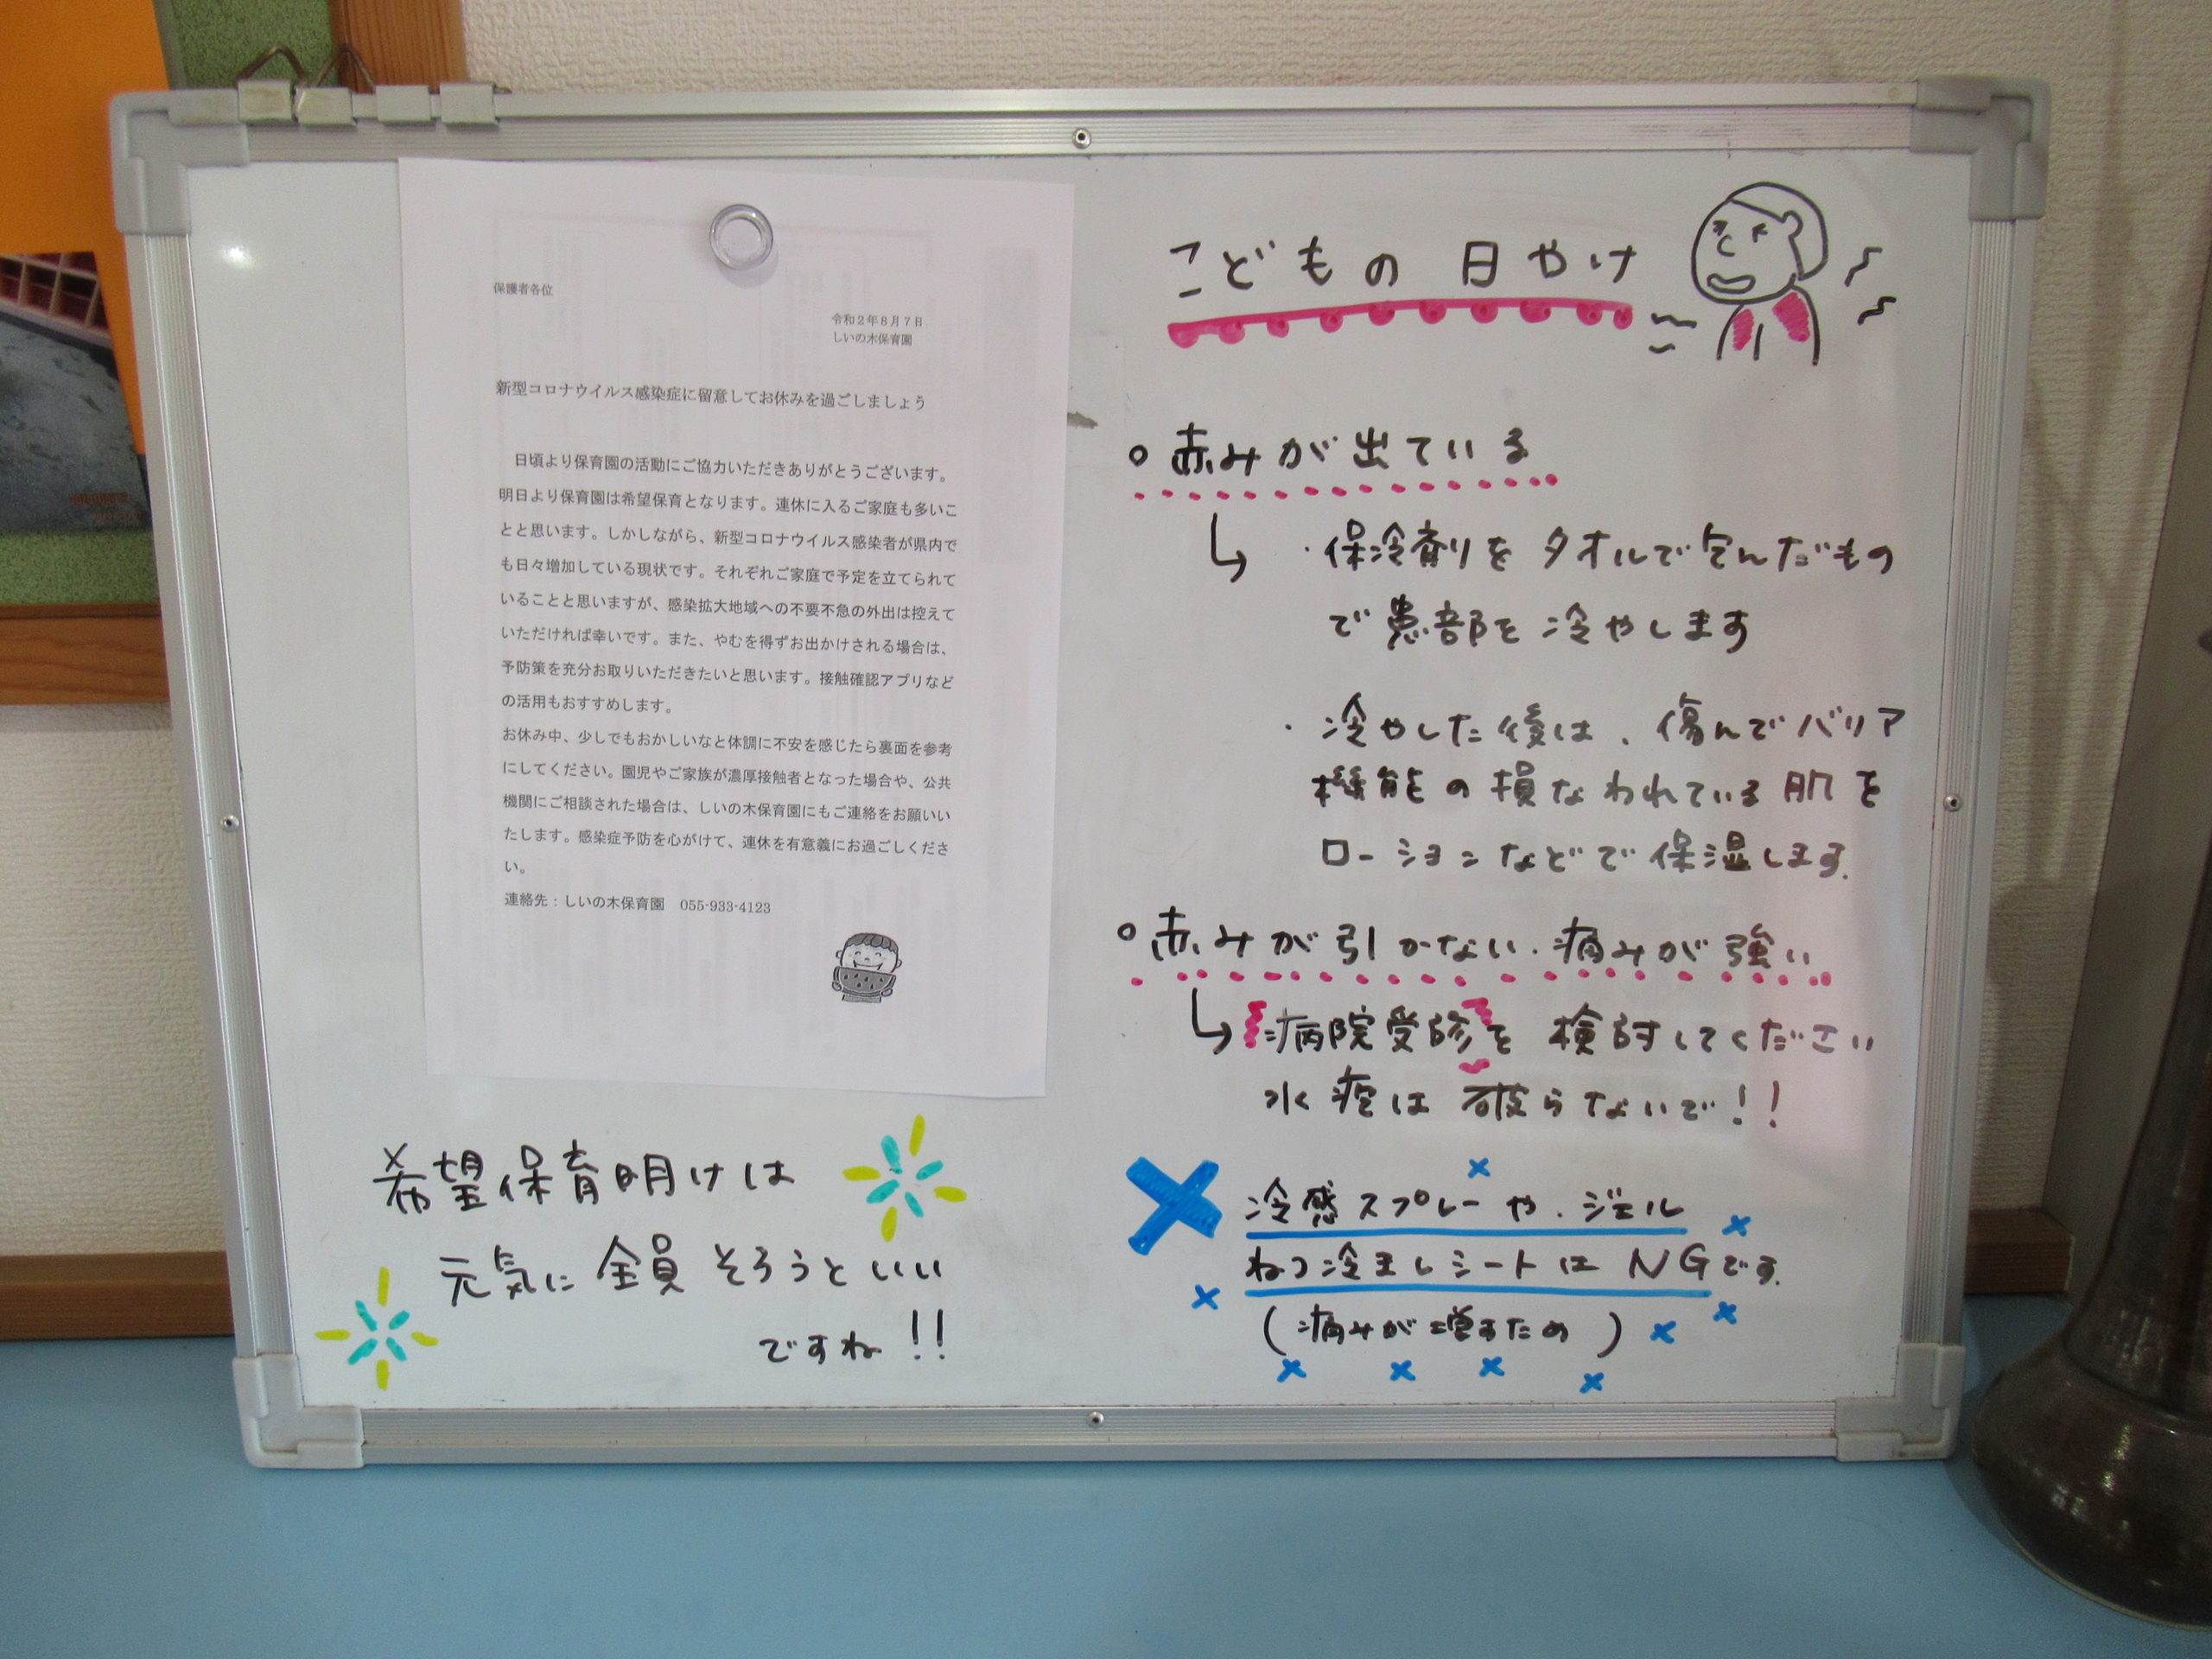 保護者各位
令和2年8月7日
しいの木保育園
新型コロナウイルス感染症に留意してお休みを過ごしましょう
日頃より保育園の活動にご協力いただきありがとうございます。
明日より保育園は希望保育となります。連休に入るご家庭も多いこ
とと思います。しかしながら、新型コロナウイルス感染者が県内で
も日々増加している現状です。それぞれご家庭で予定を立てられて
いることと思いますが、感染拡大地域への不要不急の外出は控えて
いただければ幸いです。また、やむを得ずお出かけされる場合は、
予防策を充分お取りいただきたいと思います。接触確認アプリなど
の活用もおすすめします。
お休み中、少しでもおかしいなと体調に不安を感じたら裏面を参考
にしてください。園児やご家族が濃厚接触者となった場合や、公共
機関にご相談された場合は、しいの木保育園にもご連絡をお願いい
たします。感染症予防を心がけて、連休を有意義にお過ごしくださ
い。
連絡先：しいの木保育園　055-933-4123
希望保育明けは
元気に全員そろうといい
ですね!!
こどもの日やけ
○赤みが出ている
・保冷剤をタオルで包んだもの
で患部を冷やします
・冷やした後は、傷んでバリア
機能の損なわれている肌を
ローションなどで保湿します。
○赤みが引かない・痛みが強い
病院受診を検討してください
水疱は破らないで!!
冷感スプレーや、ジェル
ねつ冷ましシートはNGです。
(痛みが増すため)